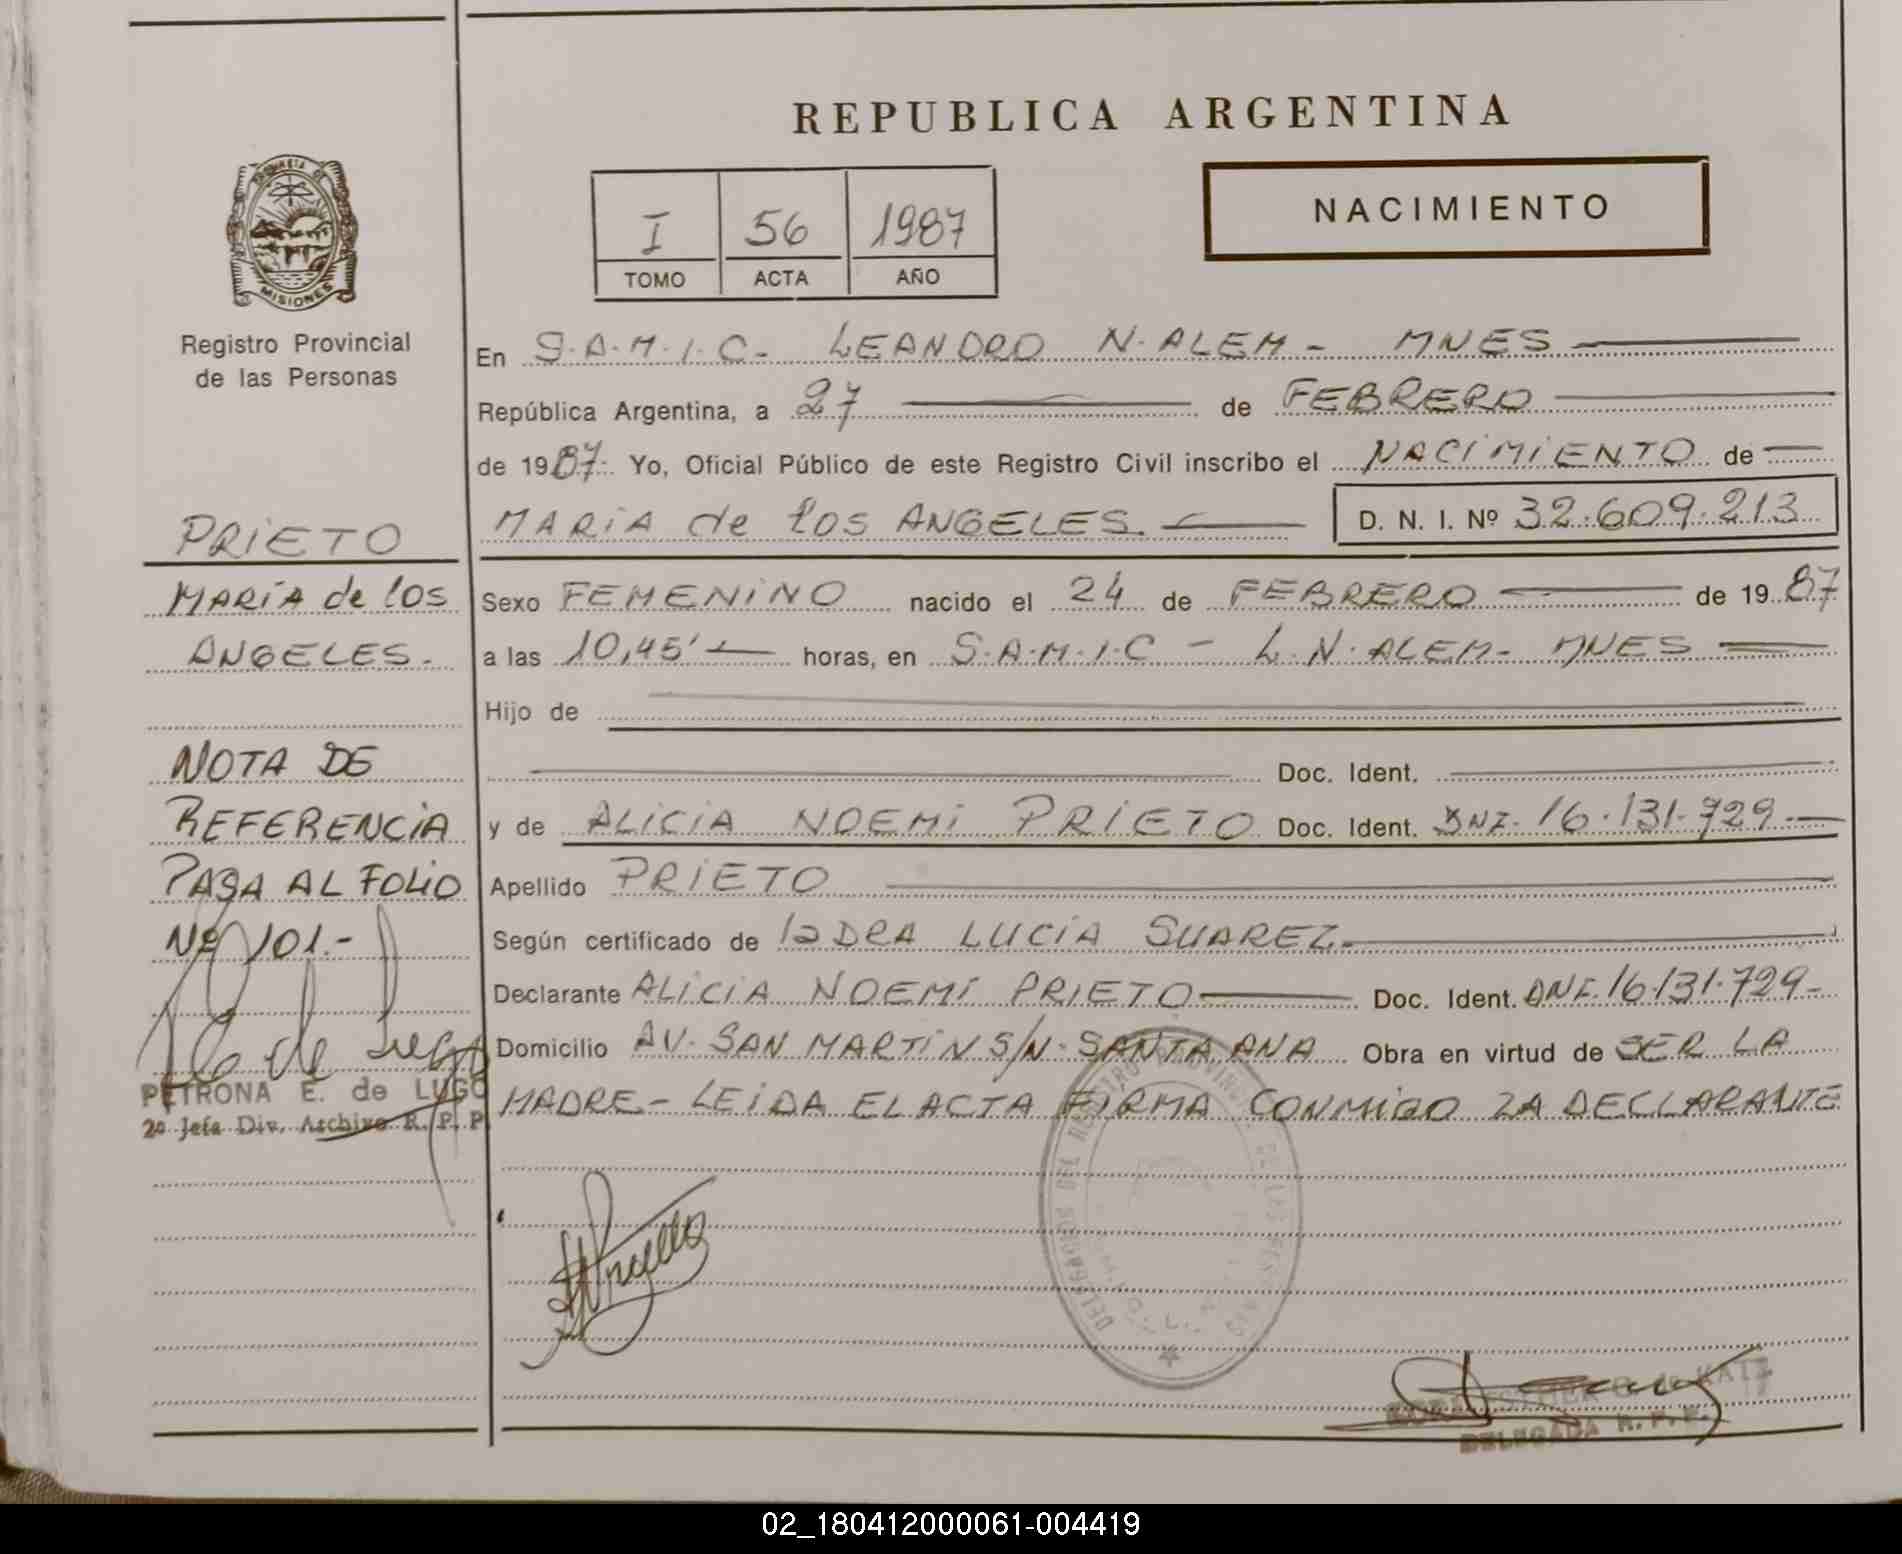 REPUBLICA ARGENTINA
NACIMIENTO
I 56 1987
TOMO ACTA AÑO
MISIONES
Registro Provincial
de las Personas
PRIETO
MARÍA de los
ANGELES.
NOTA DE
REFERENCIA
PASA AL FOLIO
Nº 101.-
PETRONA E. de LUGO
2º Jefa Div. Archivo R. P. P.
En S.A.M.I.C- LEANDRO N. ALEM- MNES
República Argentina, a 27 de FEBRERO
de 1987. Yo, Oficial Público de este Registro Civil inscribo el NACIMIENTO de
MARIA de los ANGELES. D. N. I. Nº 32.609.213
Sexo FEMENINO nacido el 24 de FEBRERO de 1987
a las 10,45' horas, en S.A.M.I.C - L.N. ALEM- MNES
Hijo de
Doc. Ident.
y de ALICIA NOEMI PRIETO Doc. Ident. DNI. 16.131.729
Apellido PRIETO
Según certificado de la DRA LUCIA SUAREZ.
Declarante ALICIA NOEMI PRIETO Doc. Ident. DNI. 16.131.729-
Domicilio AV. SAN MARTIN S/N. SANTA ANA Obra en virtud de SER LA
MADRE- LEIDA EL ACTA FIRMA CONMIGO LA DECLARANTE
DELEGADA R. P. P.
02_180412000061-004419